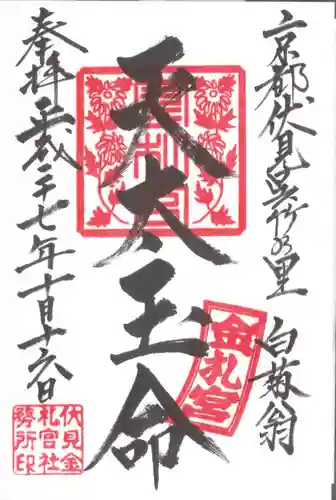 京都伏見呉竹の里 白菊翁
天太玉命
金札宮
奉拝 平成二十七年十月十六日
伏見金
札宮社
務所印